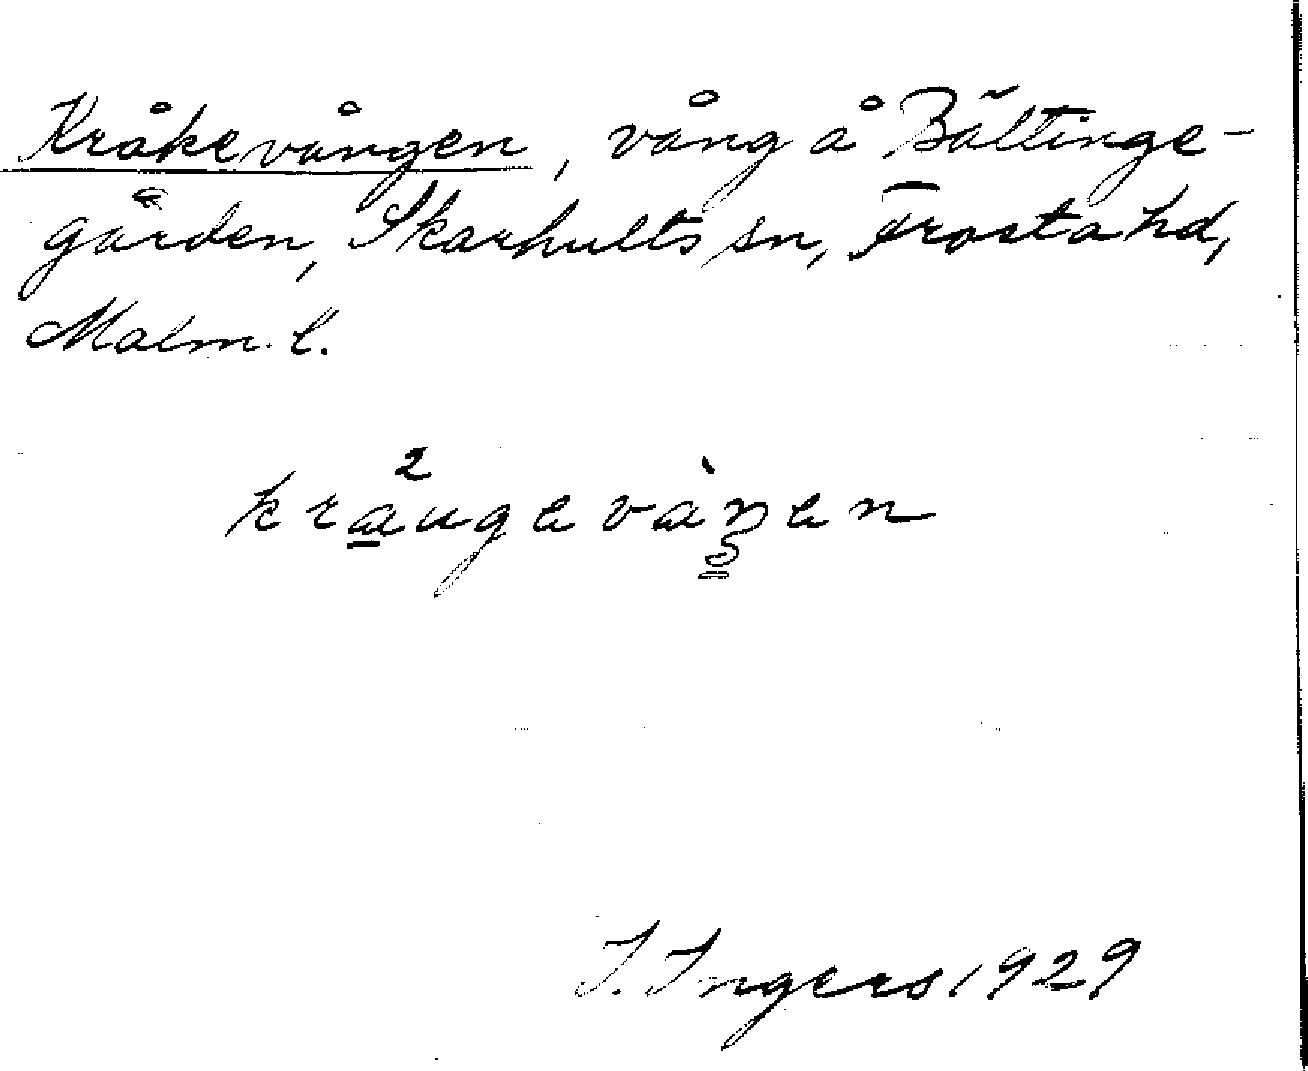 Kråkevången, vång å Bältinge-
gården, Skarhults sn, Frosta hd,
Malm. l.
I. Ingers 1929